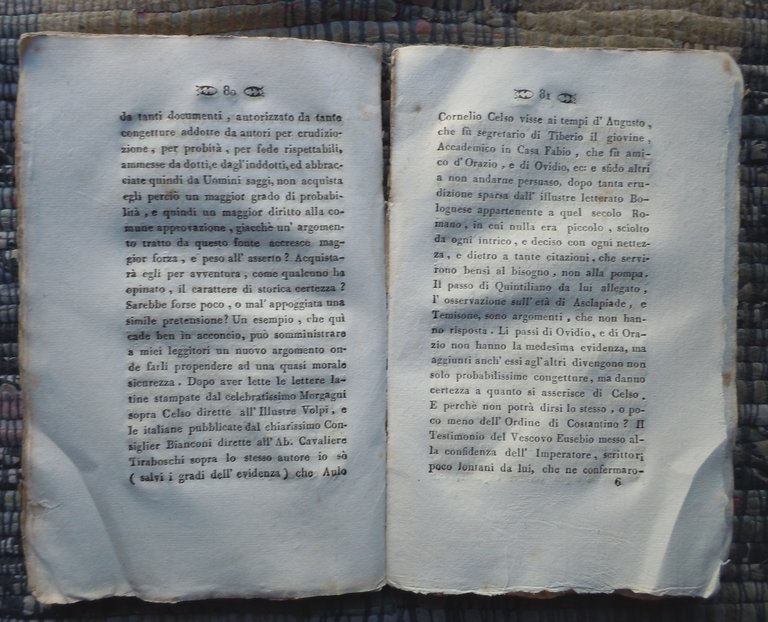 80
da tanti documenti , autorizzato da tante
congetture addotte da autori per erudizio-
zione , per probità , per fede rispettabili,
ammesse da dotti, e dagl'inddotti, ed abbrac-
ciate quindi da Uomini saggi, non acquista
egli perciò un maggior grado di probabi-
lità , e quindi un maggior diritto alla co-
mune approvazione , giacchè un' argomen-
to tratto da questo fonte accresce mag-
gior forza , e peso all' asserto ? Acquista-
rà egli per avventura , come qualcuno ha
opinato , il carattere di storica certezza ?
Sarebbe forse poco , o mal' appoggiata una
simile pretensione? Un esempio , che quì
cade ben in acconcio, può somministrare
a miei leggitori un nuovo argomento on-
de farli propendere ad una quasi morale
sicurezza . Dopo aver lette le lettere la-
tine stampate dal celebratissimo Morgagni
sopra Celso dirette all' Illustre Volpi , e
le italiane pubblicate dal chiarissimo Con-
siglier Bianconi dirette all'Ab. Cavaliere
Tiraboschi sopra lo stesso autore io sò
( salvi i gradi dell' evidenza ) che Aulo
81
Cornelio Celso visse ai tempi d' Augusto ,
che fù segretario di Tiberio il giovine ,
Accademico in Casa Fabio , che fù ami-
co d'Orazio , e di Ovidio, ec: e sfido altri
a non andarne persuaso, dopo tanta eru-
dizione sparsa dall' illustre letterato Bo-
lognese appartenente a quel secolo Ro-
mano , in cui nulla era piccolo , sciolto
da ogni intrico , e deciso con ogni nettez-
za , e dietro a tante citazioni , che servi-
rono bensì al bisogno , non alla pompa.
Il passo di Quintiliano da lui allegato ,
l' osservazione sull' età di Asclapiade , e
Temisone, sono argomenti , che non han-
no risposta . Li passi di Ovidio, e di Ora-
zio non hanno la medesima evidenza, ma
aggiunti anch' essi agl'altri divengono non
solo probabilissime congetture, ma danno
certezza a quanto si asserisce di Celso .
E perchè non potrà dirsi lo stesso , o po-
co meno dell' Ordine di Costantino ? Il
Testimonio del Vescovo Eusebio messo al-
la confidenza dell' Imperatore , scrittori
poco lontani da lui, che ne confermaro-
6